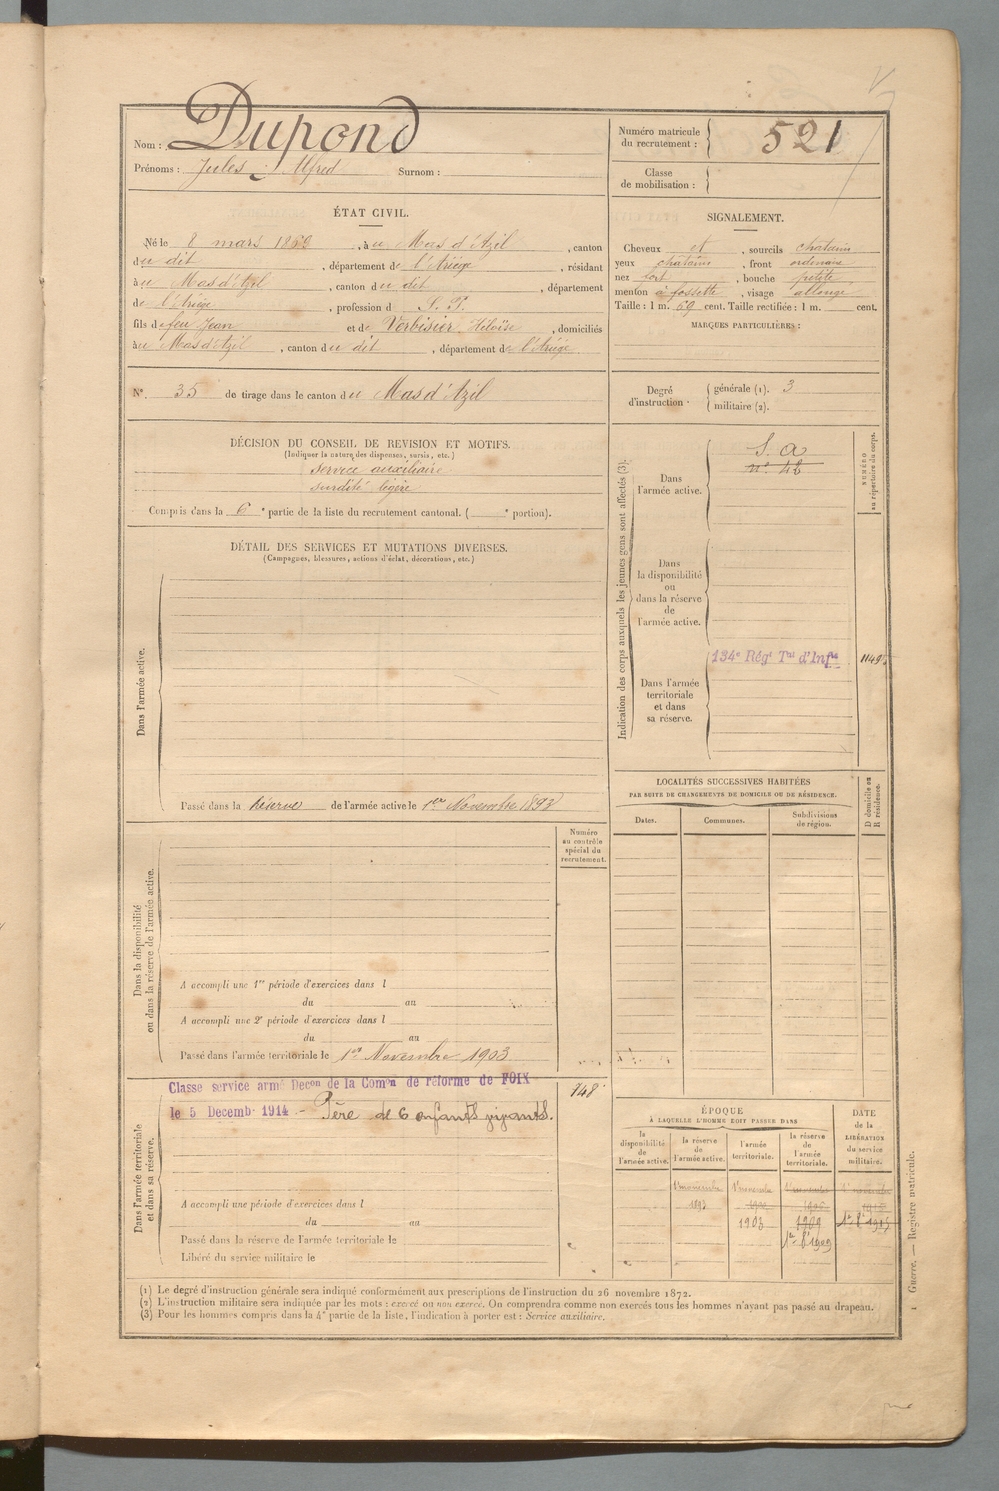 Nom : Dupond
Prénoms : Jules, Alfred Surnom :
Numéro matricule du recrutement : 521
Classe de mobilisation :
ÉTAT CIVIL.
Né le 8 mars 1869, à u Mas d'Azil, canton
du dit, département de l'Ariège, résidant
à u Mas d'Azil, canton du dit, département
de l'Ariège, profession d S. P.
fils de feu Jean et de Verbisier, Héloïse, domiciliés
à u Mas d'Azil, canton du dit, département de l'Ariège
SIGNALEMENT.
Cheveux et, sourcils chatains
yeux chatains, front ordinaire
nez fort, bouche petite
menton à fossette, visage allongé
Taille : 1 m. 69 cent. Taille rectifiée : 1 m. cent.
MARQUES PARTICULIÈRES :
N° 35 de tirage dans le canton du Mas d'Azil
Degré d'instruction : générale (1). 3
militaire (2).
DÉCISION DU CONSEIL DE REVISION ET MOTIFS.
(Indiquer la nature des dispenses, sursis, etc.)
service auxiliaire
surdité légère
Compris dans la 6e partie de la liste du recrutement cantonal. ( e portion).
DÉTAIL DES SERVICES ET MUTATIONS DIVERSES.
(Campagnes, blessures, actions d'éclat, décorations, etc.)
Dans l'armée active.
Passé dans la réserve de l'armée active le 1er Novembre 1893
Indication des corps auxquels les jeunes gens sont affectés (3).
NUMÉRO au répertoire du corps.
Dans l'armée active.
S. a
n° 42
Dans la disponibilité ou dans la réserve de l'armée active.
Dans l'armée territoriale et dans sa réserve.
134e Régt Tal d'Infie
LOCALITÉS SUCCESSIVES HABITÉES
PAR SUITE DE CHANGEMENTS DE DOMICILE OU DE RÉSIDENCE.
Dates.
Communes.
Subdivisions de région.
D domicile ou R résidence.
Numéro au contrôle spécial du recrutement.
Dans la disponibilité ou dans la réserve de l'armée active.
A accompli une 1re période d'exercices dans l
du au
A accompli une 2e période d'exercices dans l
du au
Passé dans l'armée territoriale le 1er Novembre 1903
Dans l'armée territoriale et dans sa réserve.
Classé service armé Decon de la Comon de réforme de FOIX
148
le 5 Decemb 1914 - Père de 6 enfants vivants.
A accompli une période d'exercices dans l
du au
Passé dans la réserve de l'armée territoriale le
Libéré du service militaire le
ÉPOQUE
À LAQUELLE L'HOMME DOIT PASSER DANS
la disponibilité de l'armée active.
la réserve de l'armée active.
l'armée territoriale.
la réserve de l'armée territoriale.
DATE de la LIBÉRATION du service militaire.
1er novembre 1er novembre 1er novembre 1er novembre
1893
1903 1909
(1) Le degré d'instruction générale sera indiqué conformément aux prescriptions de l'instruction du 26 novembre 1872.
(2) L'instruction militaire sera indiquée par les mots : exercé ou non exercé. On comprendra comme non exercés tous les hommes n'ayant pas passé au drapeau.
(3) Pour les hommes compris dans la 4e partie de la liste, l'indication à porter est : Service auxiliaire.
1 Guerre. — Registre matricule.